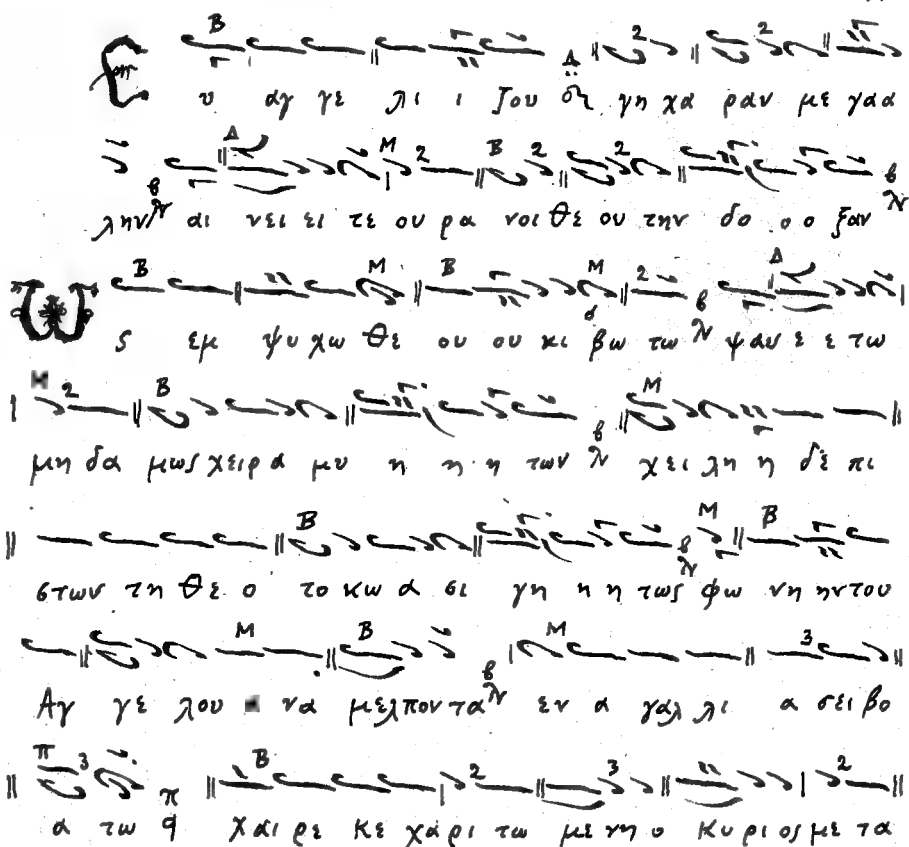 Ε υ αγ γε λι ι ζου γη χα ραν με γαα
λην αι νει ει τε ου ρα νοι θε ου την δο ο ο ξαν
Ω ς εμ ψυ χω θε ου ου κι βω τω ψαυ ε ε τω
μη δα μως χειρ α μυ η η η των χει λη η δε πι
στων τη θε ο το κω α σι γη η η τως φω νη ηντου
Αγ γε λου α να μελπον τα εν α γαλ λι α σει βο
α τω χαι ρε κε χα ρι τω με νη ο κυ ρι ος με τα